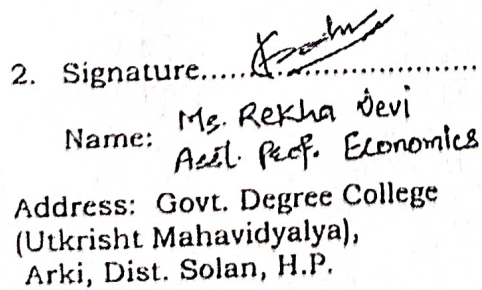 2. Signature..........................
Name: Ms. Rekha Devi
Asst. Prof. Economics
Address: Govt. Degree College
(Utkrisht Mahavidyalya),
Arki, Dist. Solan, H.P.